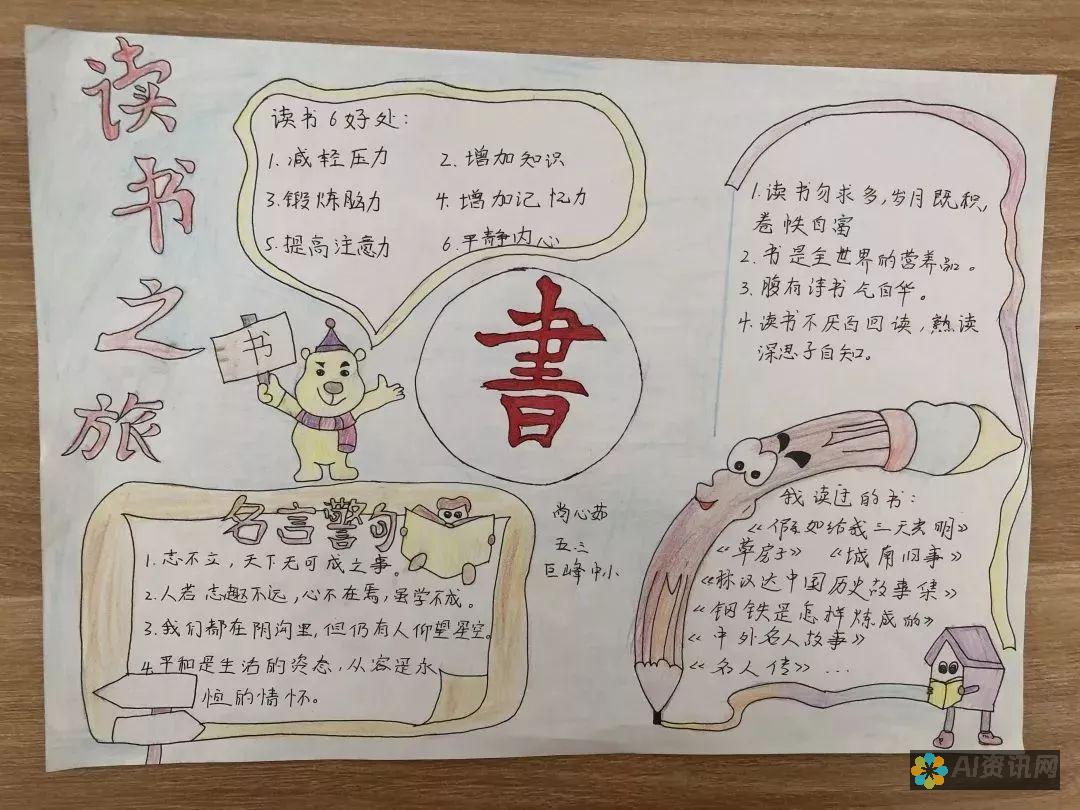 读书之旅
读书6好处：
1.减轻压力 2.增加知识
3.锻炼脑力 4.增加记忆力
5.提高注意力 6.平静内心
书
書
1.读书勿求多,岁月既积,
卷帙自富
2.书是全世界的营养品。
3.腹有诗书气自华。
4.读书不厌百回读,熟读
深思子自知。
名言警句
1.志不立,天下无可成之事。
2.人若志趣不远,心不在焉,虽学不成。
3.我们都在阴沟里,但仍有人仰望星空。
4.平和是生活的姿态,从容是永
恒的情怀。
尚心茹
五三
巨峰中小
我读过的书：
《假如给我三天光明》
《草房子》 《城南旧事》
《林汉达中国历史故事集》
《钢铁是怎样炼成的》
《中外名人故事》
《名人传》...
AI资讯网